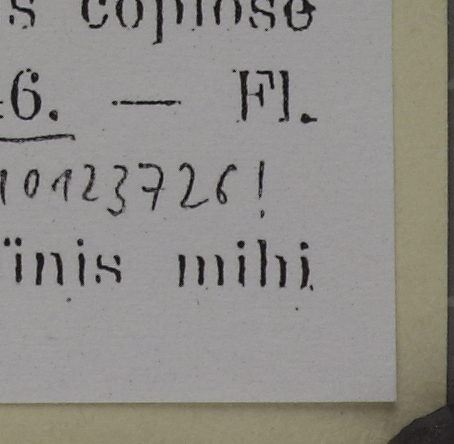 s copiose
46. — Fl.
10123726!
inis mihi